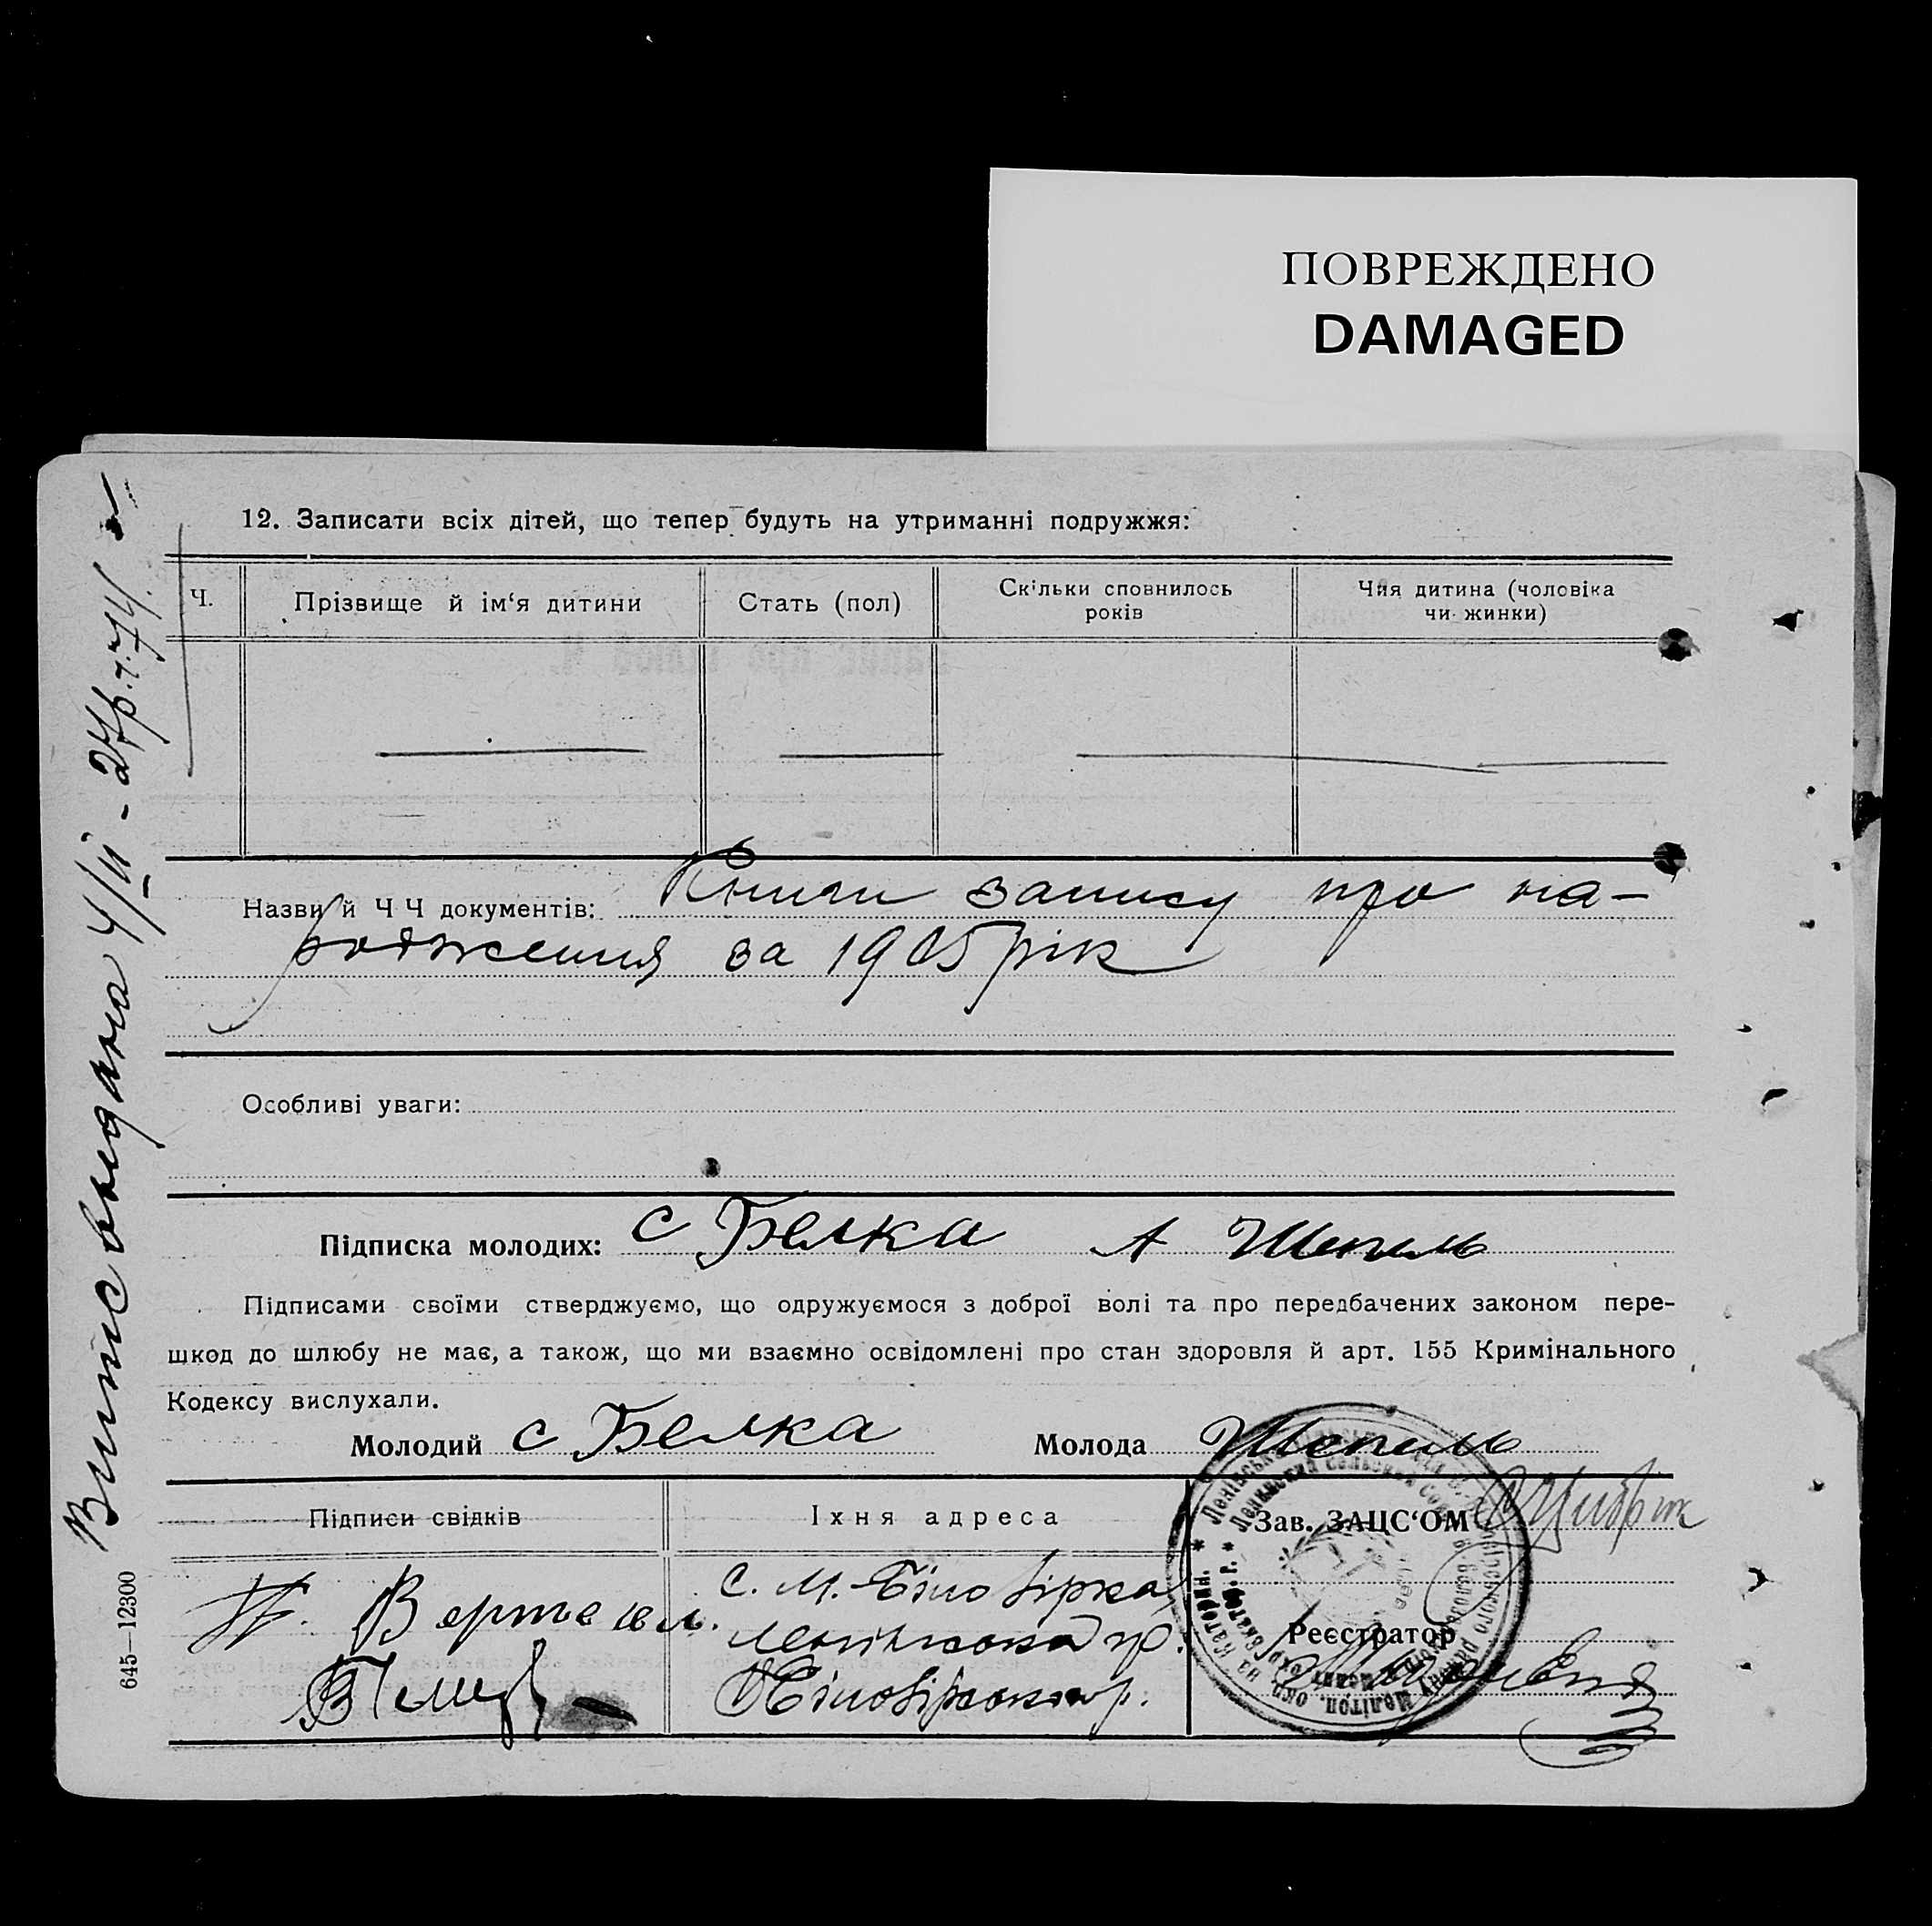 ПОВРЕЖДЕНО
DAMAGED
12. Записати всіх дітей, що тепер будуть на утриманні подружжя:
Ч.
Прізвище й ім‘я дитини
Стать (пол)
Скільки сповнилось
років
Чия дитина (чоловіка
чи жинки)
Назви й Ч Ч документів: Книги запису про на-
родження за 1905 рік
Особливі уваги:
Підписка молодих: С Белка А Шепель
Підписами своїми стверджуємо, що одружуємося з доброї волі та про передбачених законом пере-
шкод до шлюбу не має, а також, що ми взаємно освідомлені про стан здоровля й арт. 155 Кримінального
Кодексу вислухали.
Молодий С Белка Молода Шепель
Підписи свідків
Їхня адреса
Зав. ЗАЦС‘ОМ
с. М. Білозірка
Реєстратор
Випис выдана 4/II - 27р.
645—12300